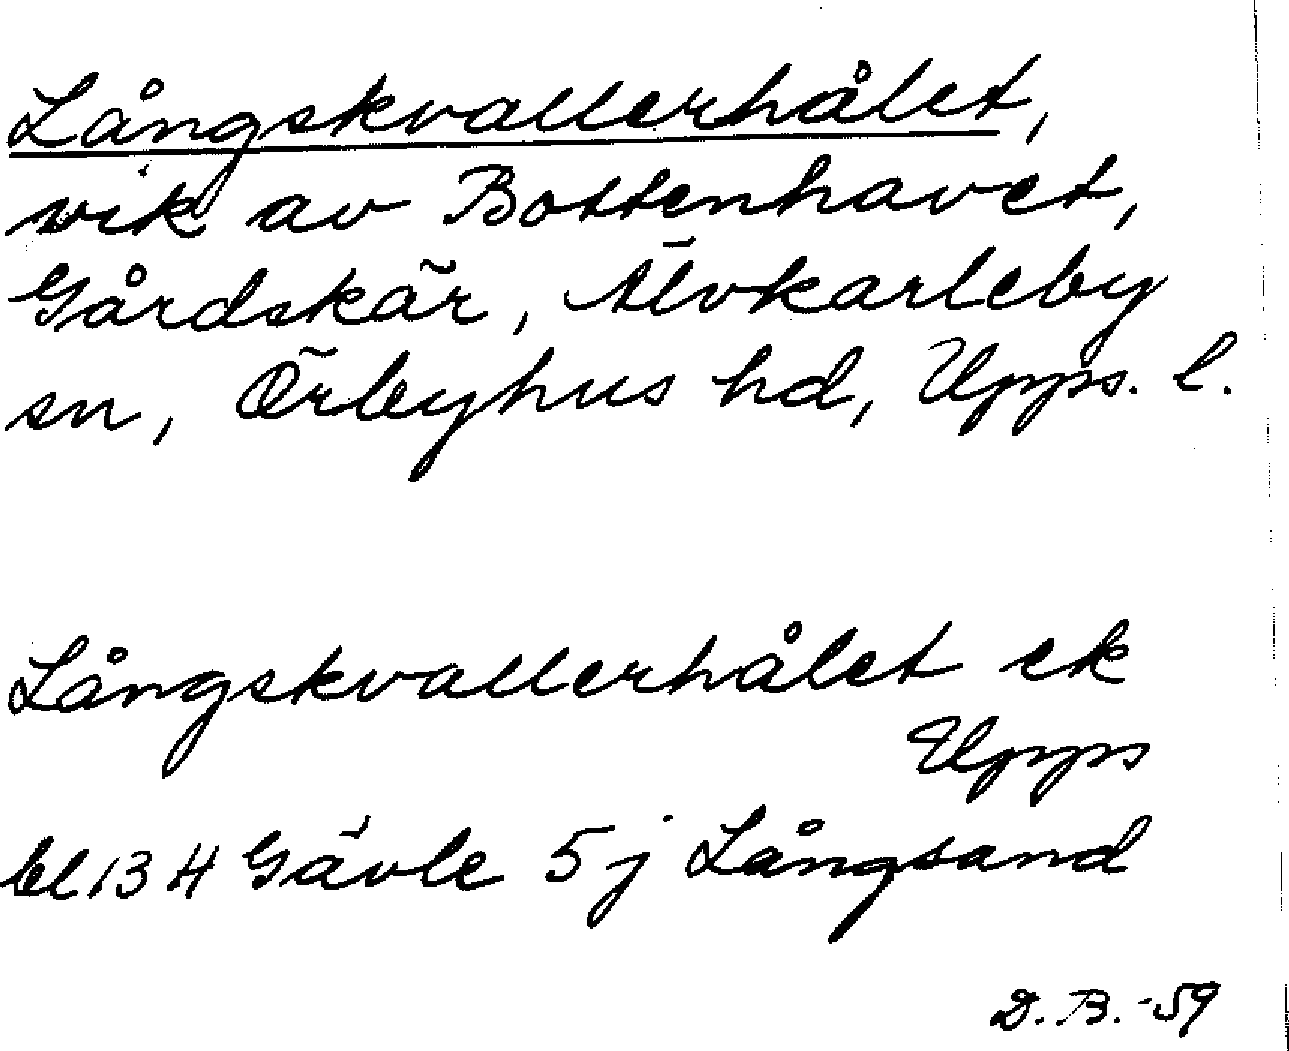 Långskvallerhålet,
vik av Bottenhavet,
Gårdskär, Älvkarleby
sn, Örbyhus hd, Upps. l.
Långskvallerhålet ek
Upps
bl 13 H Gävle 5 j Långsand
D. B. -59